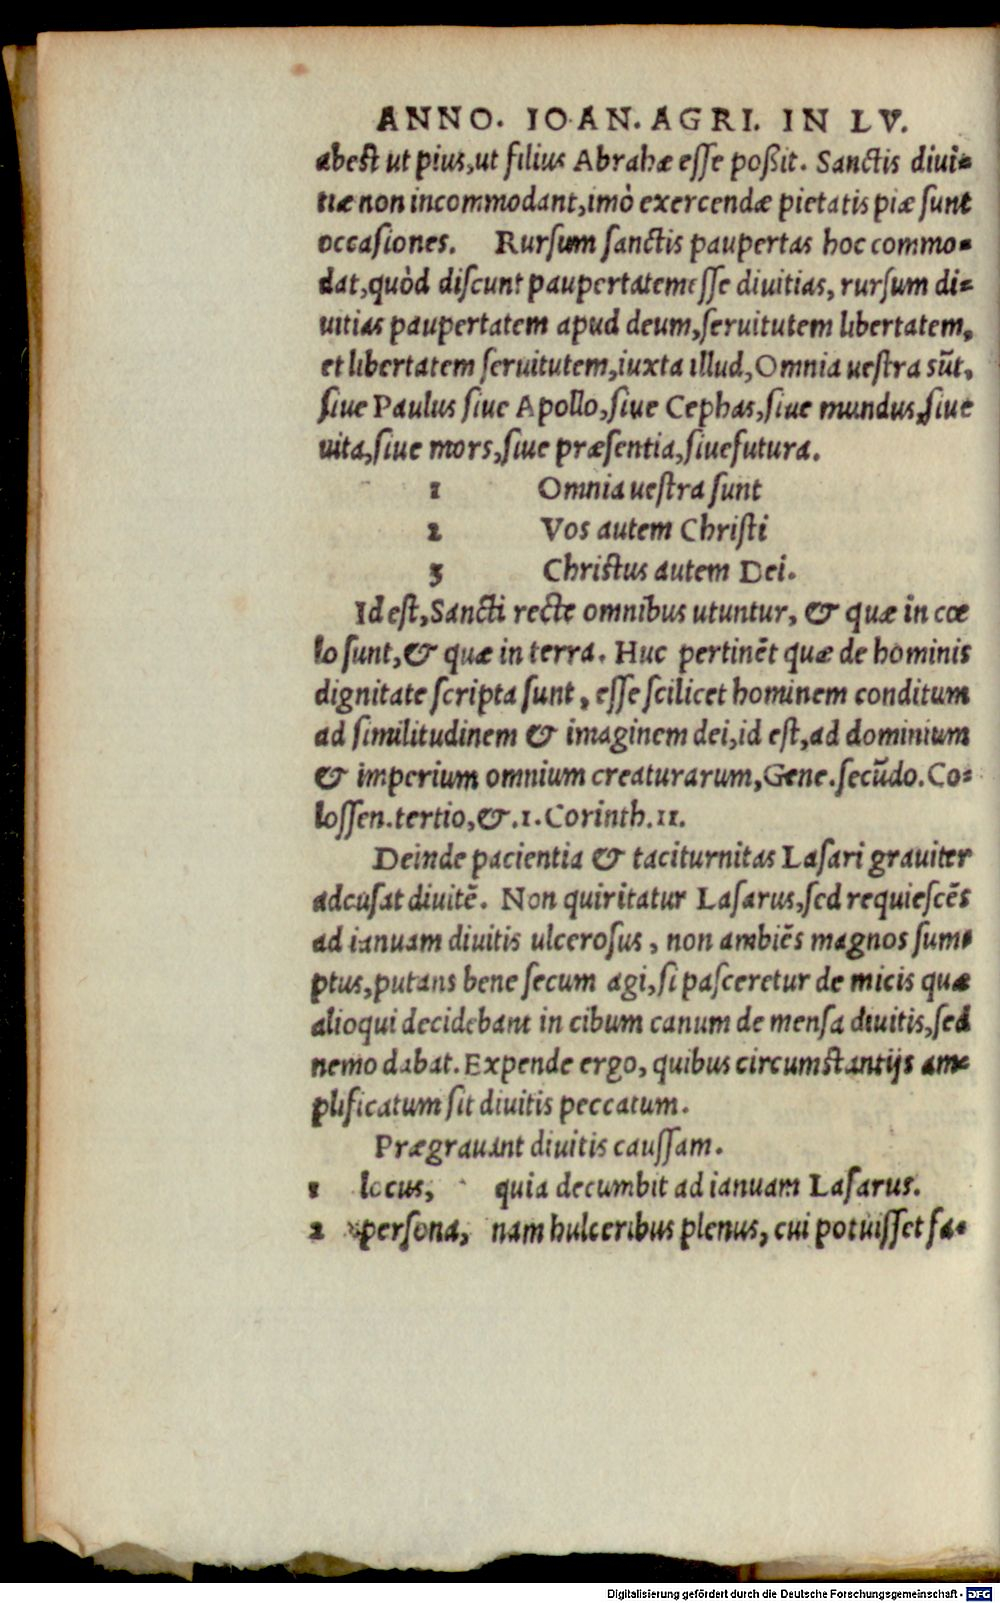 ANNO. IOAN. AGRI. IN LV.
abest ut pius, ut filius Abrahæ esse poßit. Sanctis diui-
tiæ non incommodant, imò exercendæ pietatis piæ sunt
occasiones. Rursum sanctis paupertas hoc commo-
dat, quòd discunt paupertatem esse diuitias, rursum di-
uitias paupertatem apud deum, seruitutem libertatem,
et libertatem seruitutem, iuxta illud, Omnia uestra sūt,
siue Paulus siue Apollo, siue Cephas, siue mundus, siue
uita, siue mors, siue præsentia, siue futura.
1 Omnia uestra sunt
2 Vos autem Christi
3 Christus autem Dei.
Id est, Sancti recte omnibus utuntur, & quæ in cœ
lo sunt, & quæ in terra. Huc pertinēt quæ de hominis
dignitate scripta sunt, esse scilicet hominem conditum
ad similitudinem & imaginem dei, id est, ad dominium
& imperium omnium creaturarum, Gene. secūdo. Co-
lossen. tertio, &. 1. Corinth. 11.
Deinde pacientia & taciturnitas Lasari grauiter
adcusat diuitē. Non quiritatur Lasarus, sed requiescēs
ad ianuam diuitis ulcerosus, non ambiēs magnos sum-
ptus, putans bene secum agi, si pasceretur de micis quæ
alioqui decidebant in cibum canum de mensa diuitis, sed
nemo dabat. Expende ergo, quibus circumstantijs am-
plificatum sit diuitis peccatum.
Prægrauant diuitis caussam.
1 locus, quia decumbit ad ianuam Lasarus.
2 persona, nam hulceribus plenus, cui potuisset sa-
Digitalisierung gefördert durch die Deutsche Forschungsgemeinschaft - DFG